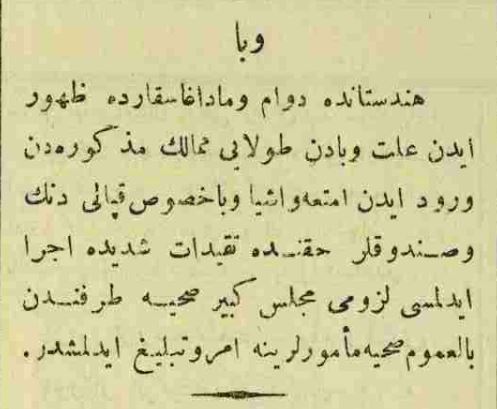 وبا
هندستانده دوام وماداغاسقارده ظهور
ایدن علت وبادن طولایی ممالك مذكوره‌دن
ورود ایدن امتعه‌واشیا وباخصوص قپالی دنك
وصندوقلر حقنده تقیدات شدیده اجرا
ایدلمسی لزومی مجلس كبیر صحیه طرفندن
بالعموم صحیه‌مأمورلرینه امروتبلیغ ایدلمشدر.